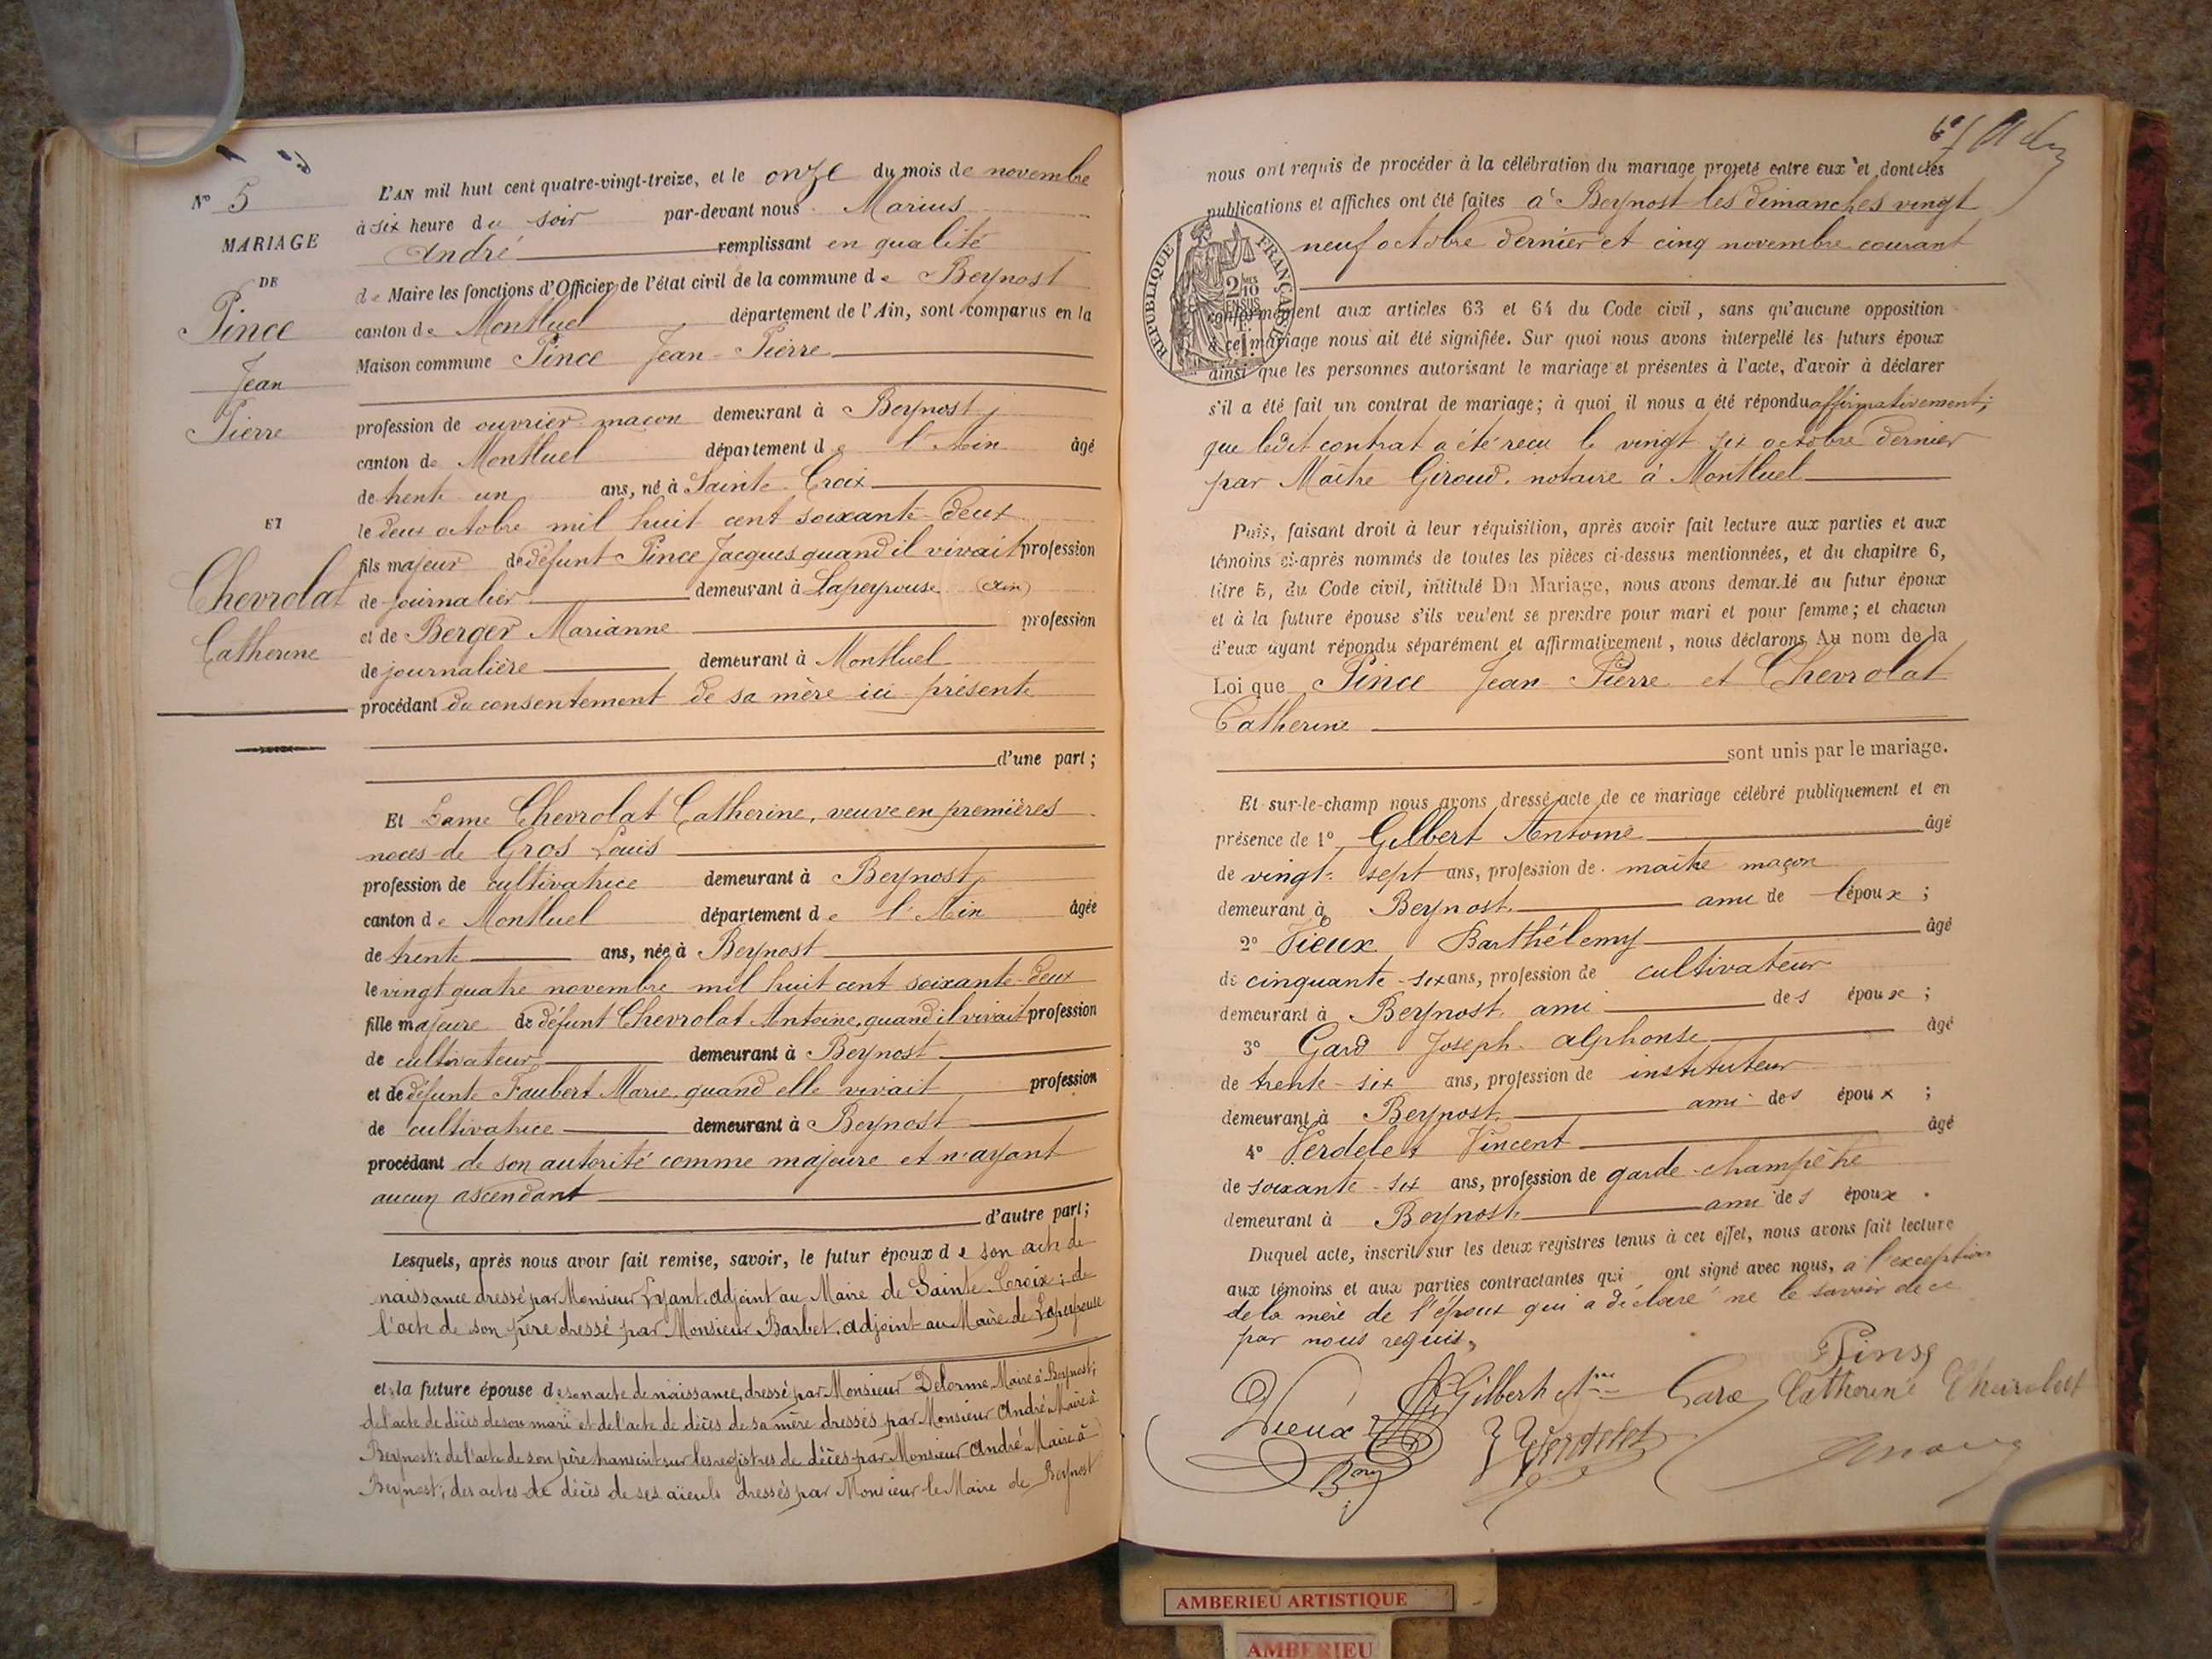 N° 5
MARIAGE
DE
Pince
Jean
Pierre
ET
Chevrolat
Catherine
L'AN mil huit cent quatre-vingt-treize, et le onze du mois de novembre
à six heure du soir par-devant nous Marius
André remplissant en qualité
de Maire les fonctions d'Officier de l'état civil de la commune de Beynost
canton de Montluel département de l'Ain, sont comparus en la
Maison commune Pince Jean-Pierre
profession de ouvrier maçon demeurant à Beynost
canton de Montluel département de l'Ain âgé
de trente un ans, né à Sainte Croix
le deux octobre mil huit cent soixante-deux
fils majeur de défunt Pince Jacques quand il vivait profession
de journalier demeurant à Lapeyrouse (Ain)
et de Berger Marianne profession
de journalière demeurant à Montluel
procédant du consentement de sa mère ici présente
d'une part;
Et Dame Chevrolat Catherine, veuve en premières
noces de Gros Louis
profession de cultivatrice demeurant à Beynost
canton de Montluel département de l'Ain âgée
de trente ans, née à Beynost
le vingt quatre novembre mil huit cent soixante-deux
fille majeure de défunt Chevrolat Antoine, quand il vivait profession
de cultivateur demeurant à Beynost
et de défunte Faubert Marie, quand elle vivait profession
de cultivatrice demeurant à Beynost
procédant de son autorité comme majeure et n'ayant
aucun ascendant
d'autre part;
Lesquels, après nous avoir fait remise, savoir, le futur époux de son acte de
naissance dressé par Monsieur adjoint au Maire de Sainte Croix; de
l'acte de son père dressé par Monsieur Barbet, adjoint au Maire de Lapeyrouse
et la future épouse de son acte de naissance, dressé par Monsieur Delorme Maire à Beynost;
de l'acte de décès de son mari et de l'acte de décès de sa mère dressés par Monsieur André Maire à
Beynost; de l'acte de son père transcrit sur les registres de décès par Monsieur André Maire à
Beynost; des actes de décès de ses aïeuls dressés par Monsieur le Maire de Beynost
nous ont requis de procéder à la célébration du mariage projeté entre eux et dont les
publications et affiches ont été faites à Beynost les dimanches vingt
neuf octobre dernier et cinq novembre courant
RÉPUBLIQUE FRANÇAISE
2/10 EN SUS
conformément aux articles 63 et 64 du Code civil, sans qu'aucune opposition
à ce mariage nous ait été signifiée. Sur quoi nous avons interpellé les futurs époux
ainsi que les personnes autorisant le mariage et présentes à l'acte, d'avoir à déclarer
s'il a été fait un contrat de mariage; à quoi il nous a été répondu affirmativement;
que ledit contrat a été reçu le vingt six octobre dernier
par Maître Giroud, notaire à Montluel
Puis, faisant droit à leur réquisition, après avoir fait lecture aux parties et aux
témoins ci-après nommés de toutes les pièces ci-dessus mentionnées, et du chapitre 6,
titre 5, du Code civil, intitulé Du Mariage, nous avons demandé au futur époux
et à la future épouse s'ils veulent se prendre pour mari et pour femme; et chacun
d'eux ayant répondu séparément et affirmativement, nous déclarons Au nom de la
Loi que Pince Jean Pierre et Chevrolat
Catherine
sont unis par le mariage.
Et sur-le-champ nous avons dressé acte de ce mariage célébré publiquement et en
présence de 1° Gilbert Antoine âgé
de vingt-sept ans, profession de maître maçon
demeurant à Beynost ami de l'époux;
2° Vieux Barthélemy âgé
de cinquante-six ans, profession de cultivateur
demeurant à Beynost ami des époux;
3° Gard Joseph alphonse âgé
de trente-six ans, profession de instituteur
demeurant à Beynost ami des époux;
4° Verdelet Vincent âgé
de soixante-six ans, profession de garde-champêtre
demeurant à Beynost ami des époux.
Duquel acte, inscrit sur les deux registres tenus à cet effet, nous avons fait lecture
aux témoins et aux parties contractantes qui ont signé avec nous, à l'exception
de la mère de l'époux qui a déclaré ne le savoir de ce
par nous requis.
Pinse
Vieux Gilbert Ane Gard Catherine Chevrolat
Bmy Verdelet
AMBERIEU ARTISTIQUE
AMBERIEU